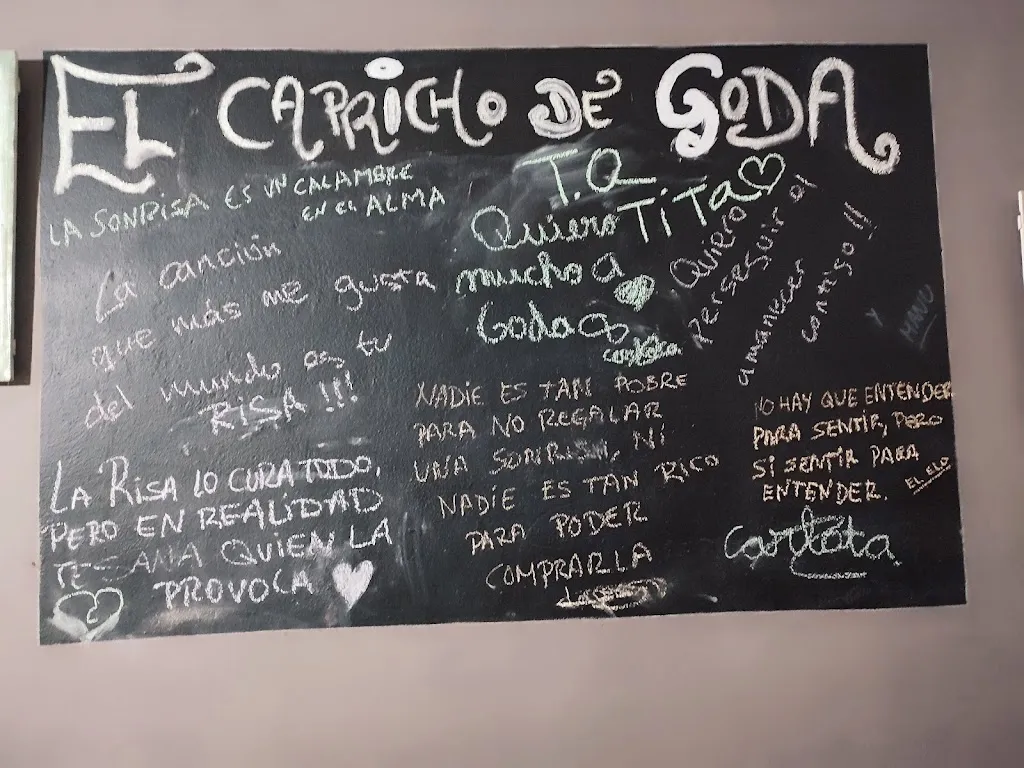 EL CAPRICHO DE GODA
LA SONRISA ES UN CALAMBRE
EN EL ALMA
La canción
que más me gusta
del mundo es tu
RISA !!!
LA RISA LO CURA TODO,
PERO EN REALIDAD
TE SANA QUIEN LA
PROVOCA
T.Q
TITA
Quiero
mucho a
Goda
Carlota
Quiero
Perseguir el
amanecer
contigo !!
Y
MANU
NADIE ES TAN POBRE
PARA NO REGALAR
UNA SONRISA, NI
NADIE ES TAN RICO
PARA PODER
COMPRARLA
NO HAY QUE ENTENDER
PARA SENTIR, PERO
SI SENTIR PARA
ENTENDER.
EL ELO
Carlota